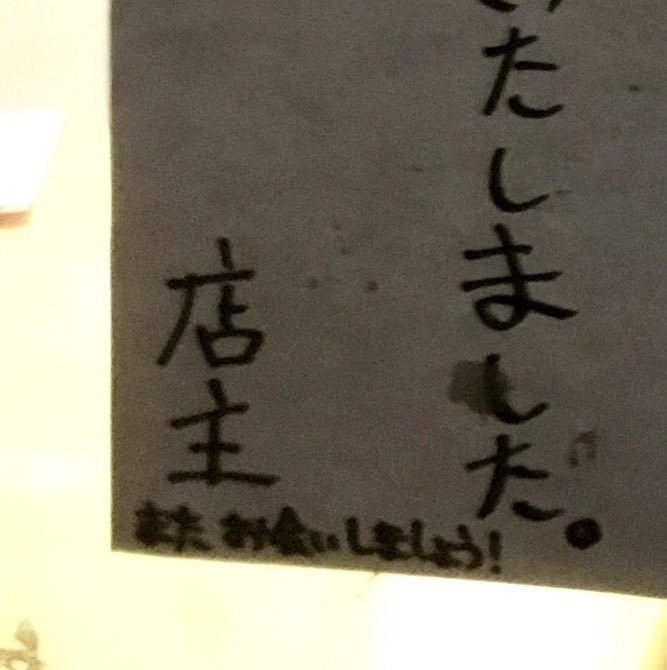 たしました。
店主
また お会いしましょう!